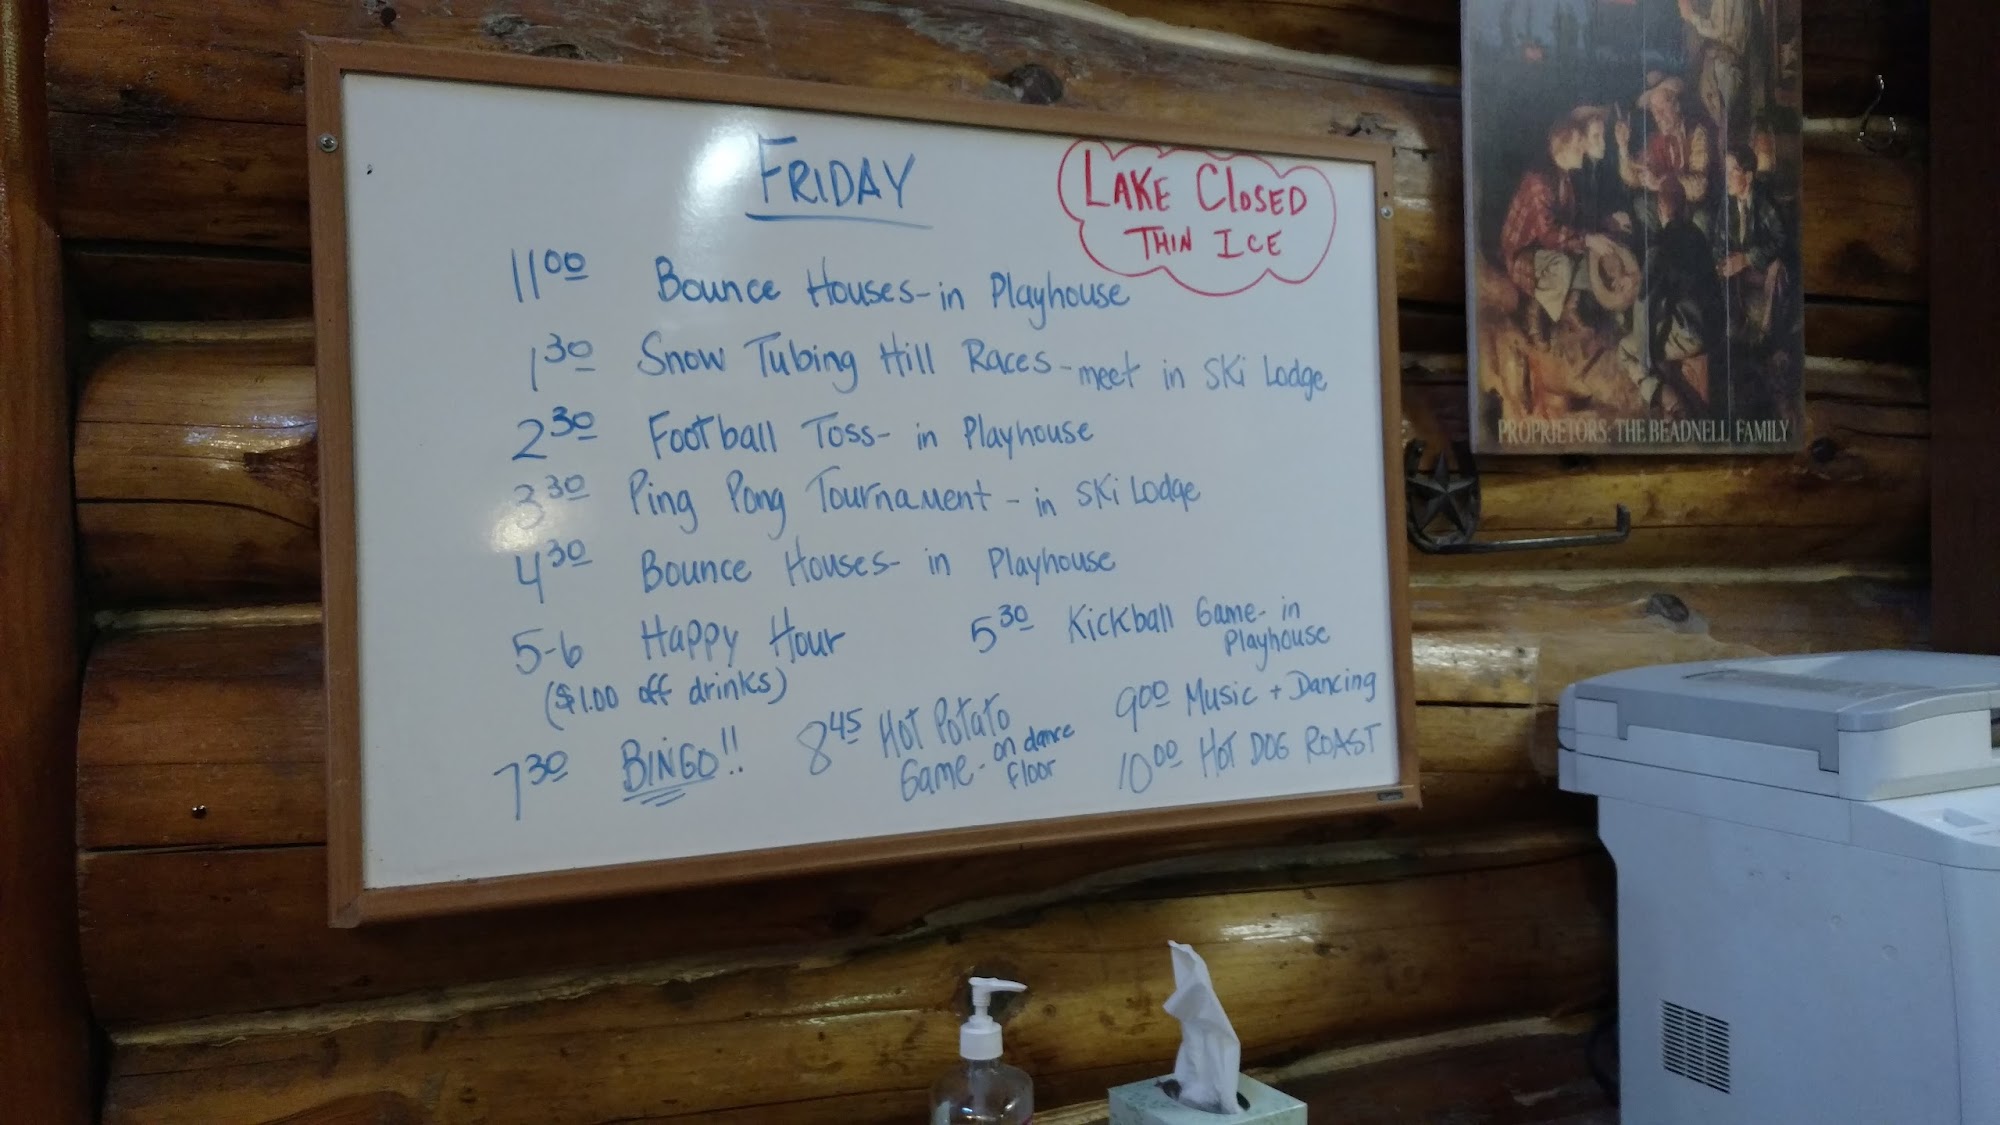 FRIDAY
LAKE CLOSED
THIN ICE
11 00 Bounce Houses - in Playhouse
1 30 Snow Tubing Hill Races - meet in Ski Lodge
2 30 Football Toss - in Playhouse
3 30 Ping Pong Tournament - in Ski Lodge
4 30 Bounce Houses - in Playhouse
5-6 Happy Hour
($1.00 off drinks)
5 30 Kickball Game - in
Playhouse
7 30 BINGO!!
8 45 Hot Potato
Game - on dance
floor
9 00 Music + Dancing
10 00 HOT DOG ROAST
PROPRIETORS: THE BEADNELL FAMILY